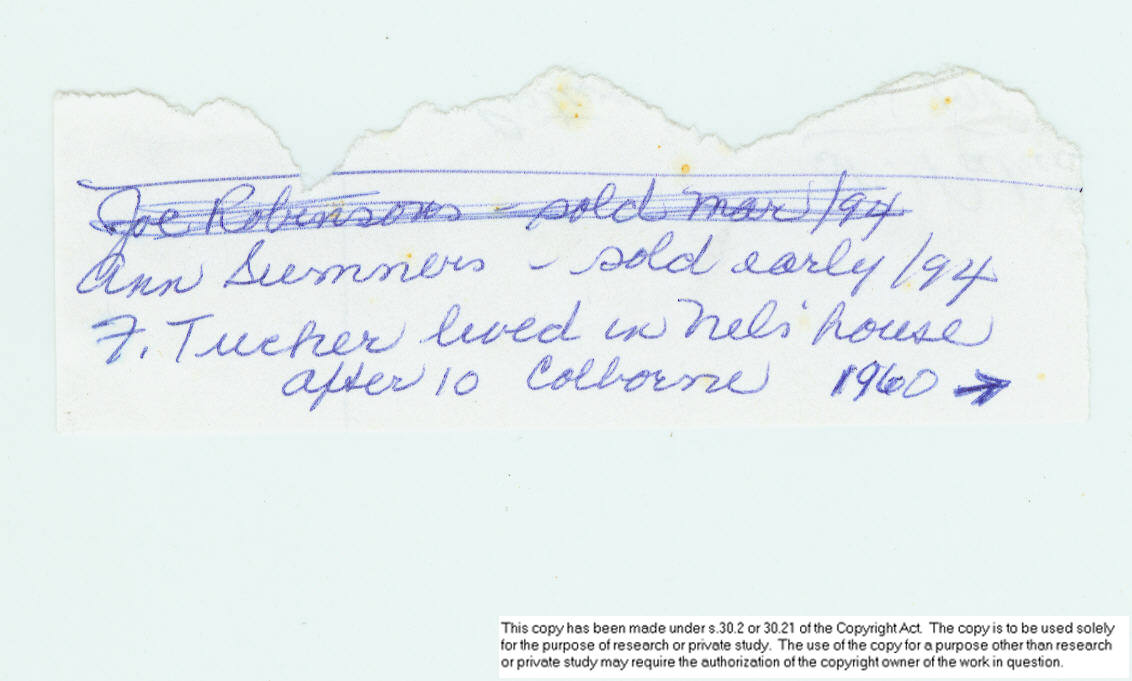 Joe Robinsons - sold Mar/94
Ann Summers - sold early/94
F. Tucker lived in Nels' house
after 10 Colborne 1960 →
This copy has been made under s.30.2 or 30.21 of the Copyright Act. The copy is to be used solely
for the purpose of research or private study. The use of the copy for a purpose other than research
or private study may require the authorization of the copyright owner of the work in question.